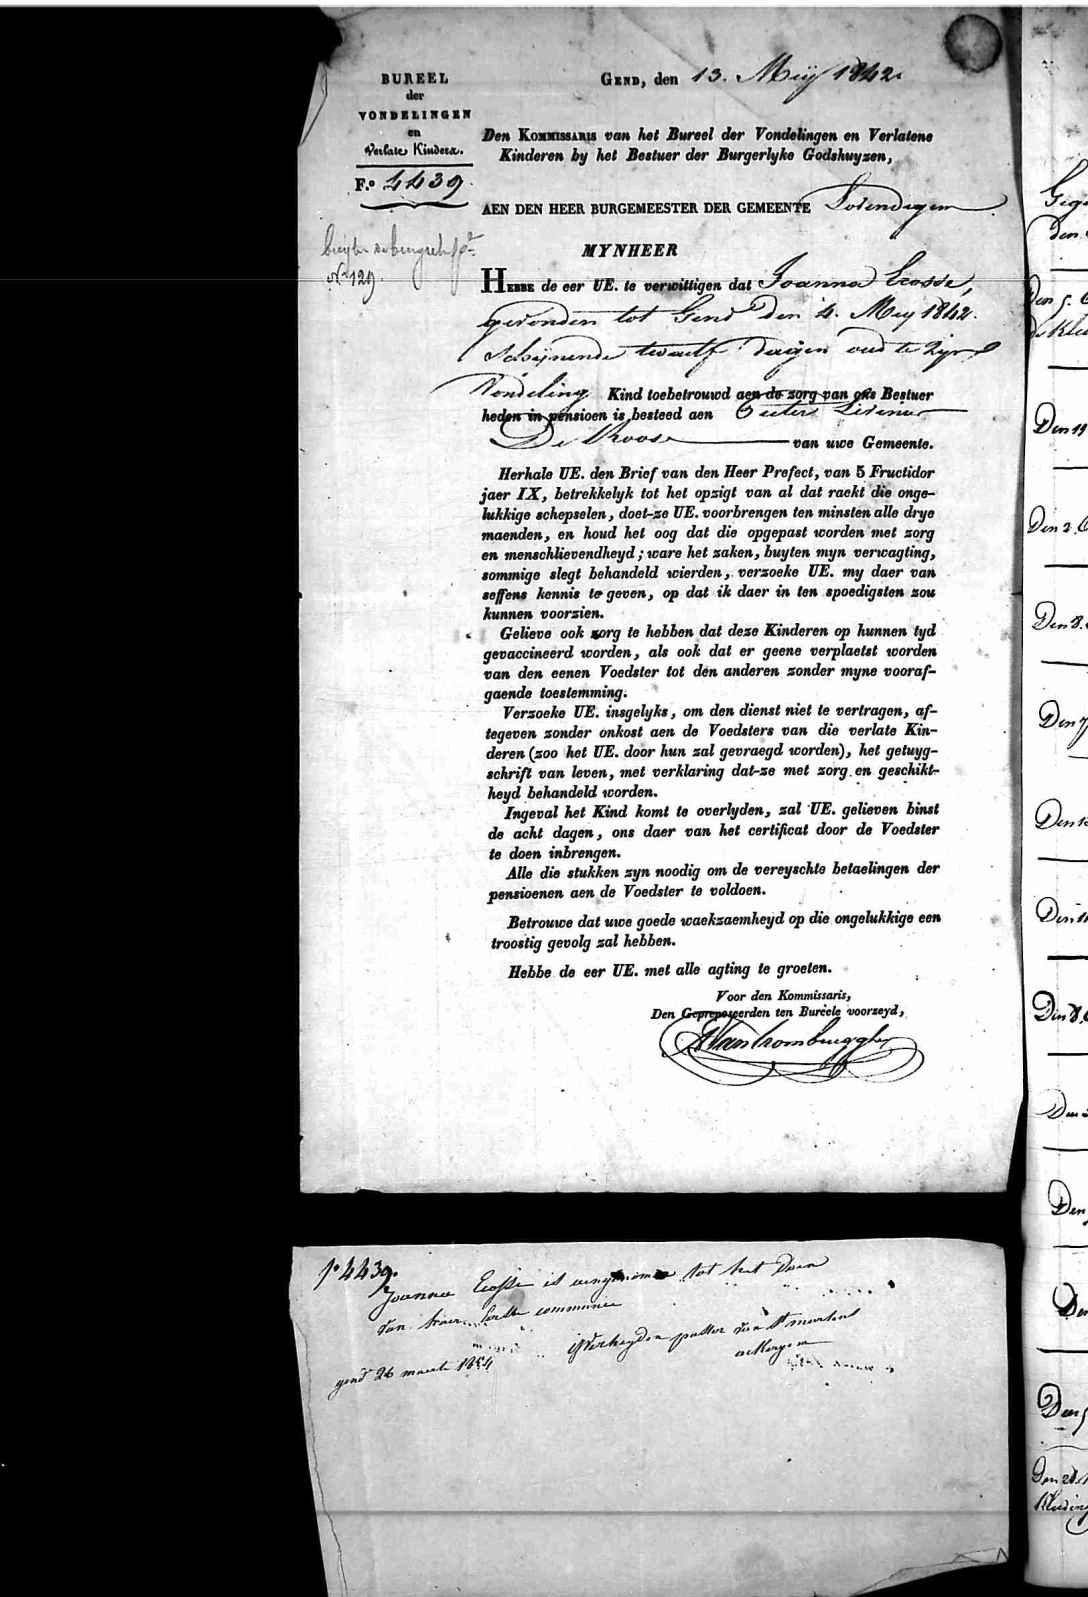 BUREEL
der
VONDELINGEN
en
Verlate Kinders.
F.º 4439.
Nº 129
GEND, den 13. Meij 1842.
Den KOMMISSARIS van het Bureel der Vondelingen en Verlatene
Kinderen by het Bestuer der Burgerlyke Godshuyzen,
AEN DEN HEER BURGEMEESTER DER GEMEENTE Lovendegem
MYNHEER
HEBBE de eer UE. te verwittigen dat Joanna Ecosse,
gevonden tot Gend den 4. Mey 1842.
schijnende twaelf dagen oud te zijn
Vondeling Kind toebetrouwd aen de zorg van ons Bestuer
heden in pensioen is besteed aen Pieter Livinus
De Vroose van uwe Gemeente.
Herhale UE. den Brief van den Heer Prefect, van 5 Fructidor
jaer IX, betrekkelyk tot het opzigt van al dat raekt die onge-
lukkige schepselen, doet-ze UE. voorbrengen ten minsten alle drye
maenden, en houd het oog dat die opgepast worden met zorg
en menschlievendheyd; ware het zaken, buyten myn verwagting,
sommige slegt behandeld wierden, verzoeke UE. my daer van
seffens kennis te geven, op dat ik daer in ten spoedigsten zou
kunnen voorzien.
Gelieve ook zorg te hebben dat deze Kinderen op hunnen tyd
gevaccineerd worden, als ook dat er geene verplaetst worden
van den eenen Voedster tot den anderen zonder myne vooraf-
gaende toestemming.
Verzoeke UE. insgelyks, om den dienst niet te vertragen, af-
tegeven zonder onkost aen de Voedsters van die verlate Kin-
deren (zoo het UE. door hun zal gevraegd worden), het getuyg-
schrift van leven, met verklaring dat-ze met zorg en geschikt-
heyd behandeld worden.
Ingeval het Kind komt te overlyden, zal UE. gelieven binst
de acht dagen, ons daer van het certificat door de Voedster
te doen inbrengen.
Alle die stukken zyn noodig om de vereyschte betaelingen der
pensioenen aen de Voedster te voldoen.
Betrouwe dat uwe goede waekzaemheyd op die ongelukkige een
troostig gevolg zal hebben.
Hebbe de eer UE. met alle agting te groeten.
Voor den Kommissaris,
Den Gepreposeerden ten Bureele voorzeyd,
VanCrombrugghe
fº 4439.
Joanna Ecosse is aengenomen tot het doen
van haer eerste communie
gend 26 maerte 1854
Verheyden pastor van St martens
ackergem